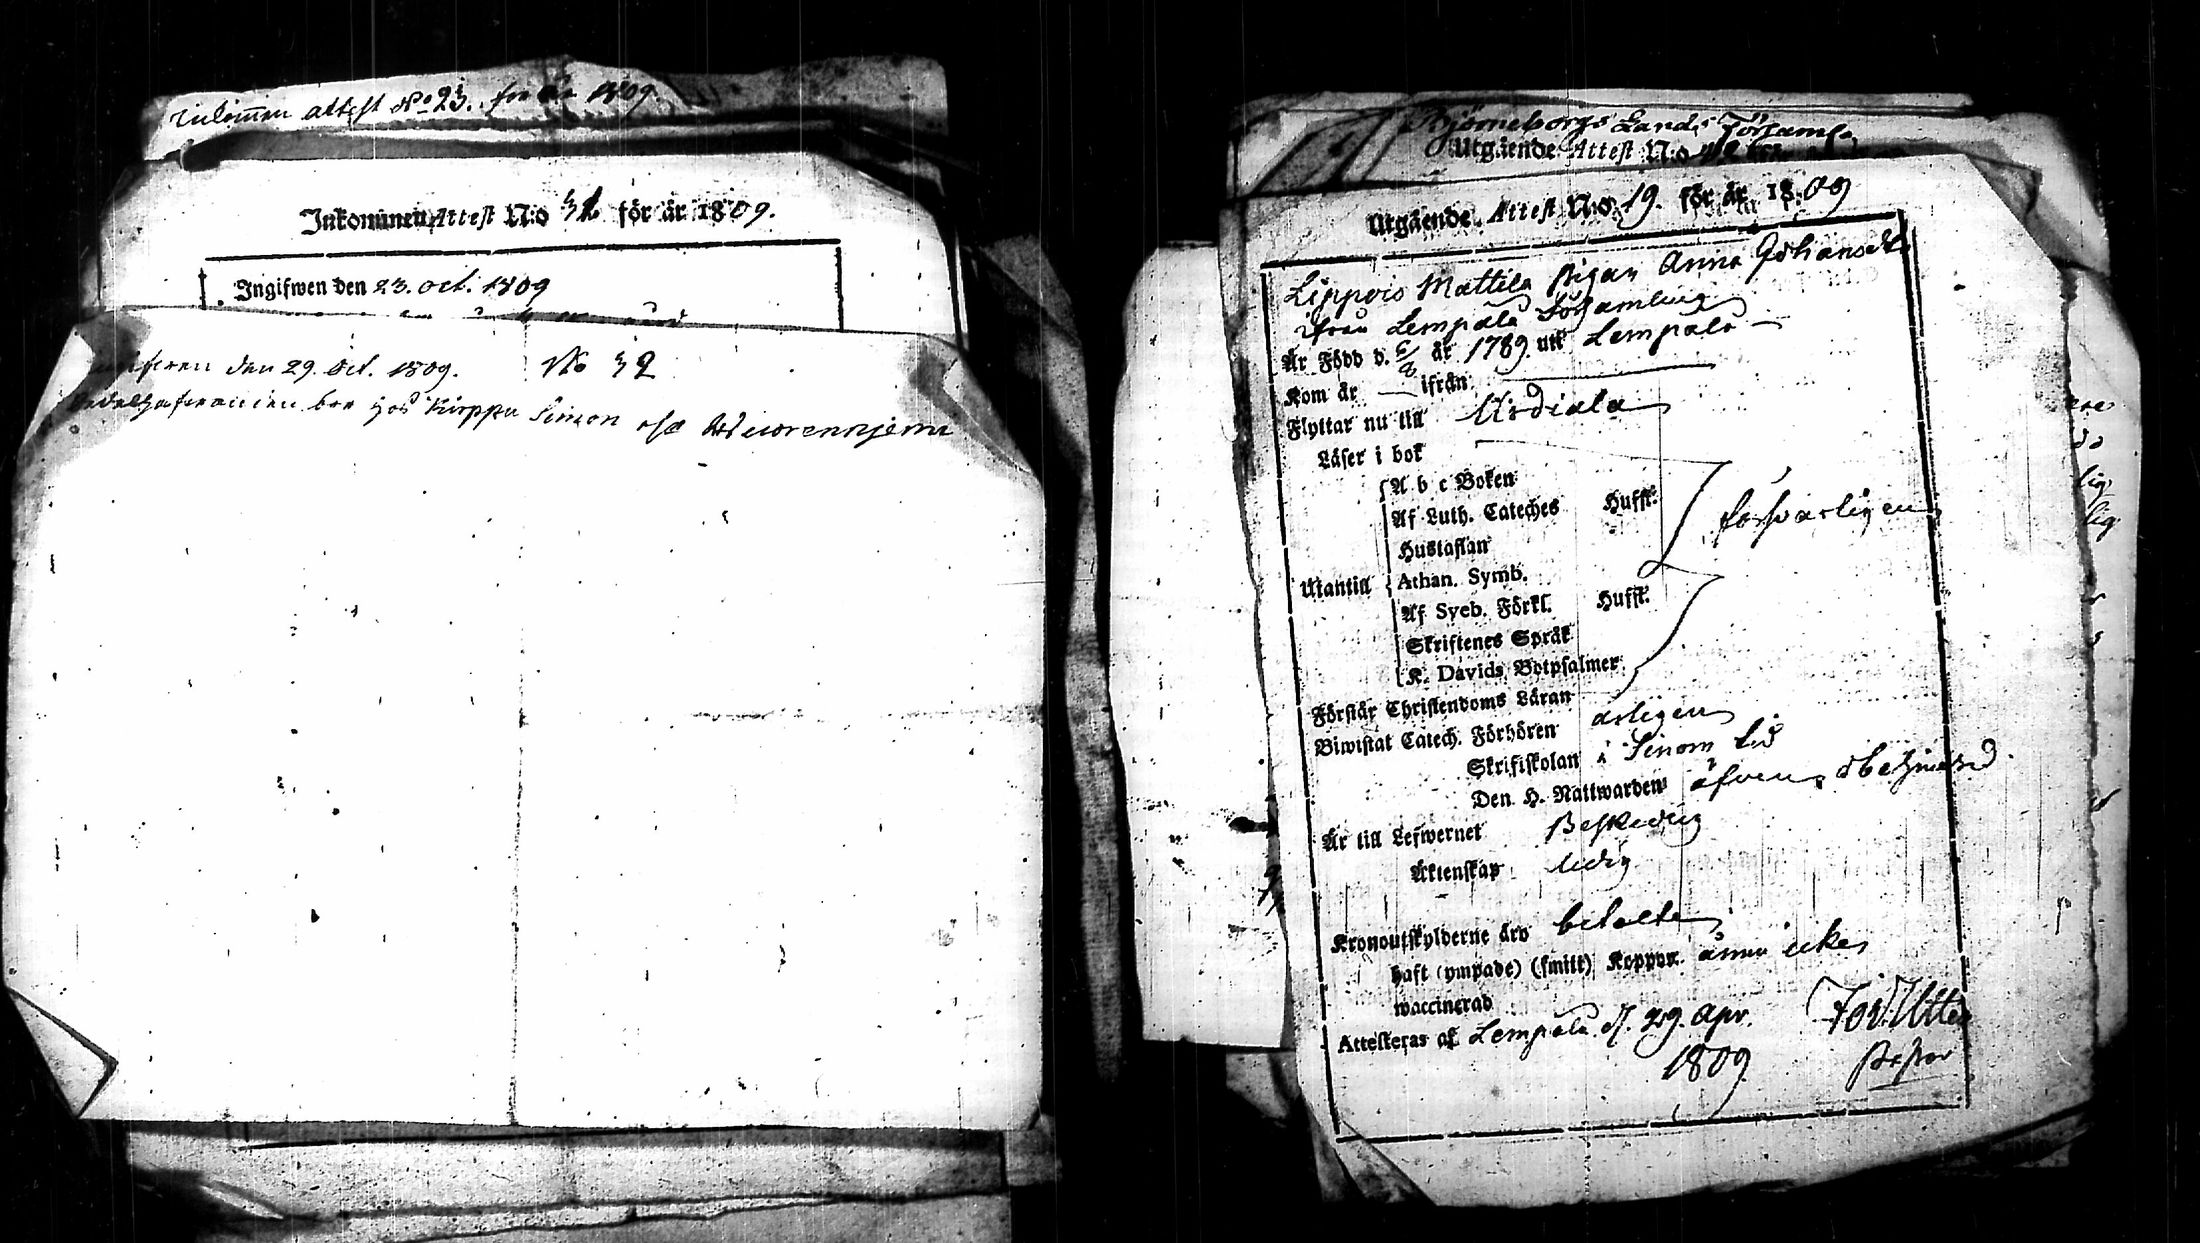 Inkommen attest No 23. för år 1809.
Inkommen Attest N:o 32 för år 1809.
Ingifwen den 23. oct. 1809
den 29. Oct. 1809. No 32
bor hos Kirppu Simon
Björneborgs Lands Församl.
Utgående Attest N:o
Utgående Attest N:o 19. för år 1809
Lippois Mattila Pigan Anna Johansdr
ifrån Lempälä Församling
År Född d. år 1789. uti Lempälä
Kom år — ifrån
Flyttar nu till Urdiala
Läser i bok
A b c Boken
Af Luth. Cateches Hufst:
försvarligen
Hustaflan
Utantill Athan. Symb.
Af Sveb. Förkl. Hufst:
Skriftenes Språk
K. Davids Botpsalmer
Förstår Christendoms Läran
Biwistat Catech. Förhören årligen
Skriftskolan i Sinom tid
Den H. Nattwarden äfven obehindrad.
Är till Lefwernet Beskedlig
Äktenskap ledig
Kronoutskylderne äro betalte
haft (ympade) (smitt) Koppor ännu icke
waccinerad
Attesteras af Lempälä d. 29. Apr.
1809